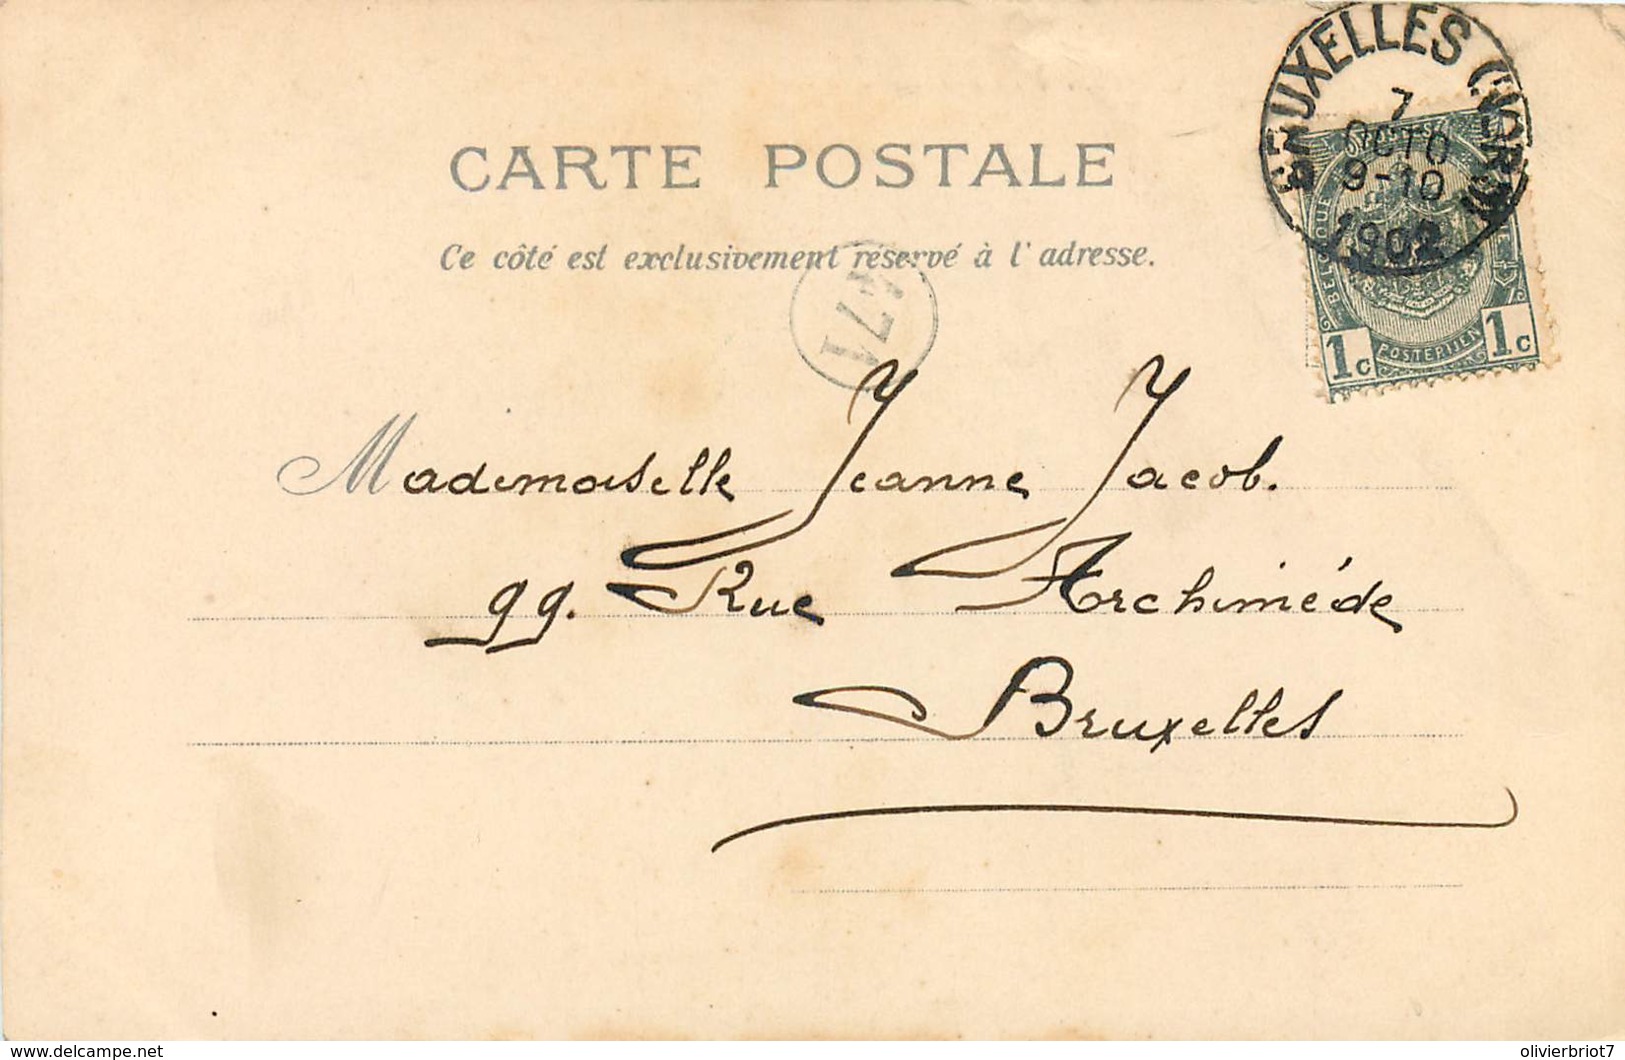 BRUXELLES (LUXEMBOURG)
7
OCTO
9-10
1902
CARTE POSTALE
Ce côté est exclusivement réservé à l'adresse.
BELGIQUE
1c POSTERIJEN 1c
Mademoiselle Jeanne Jacob.
99. Rue Archiméde
Bruxelles
delcampe.net
olivierbriot7